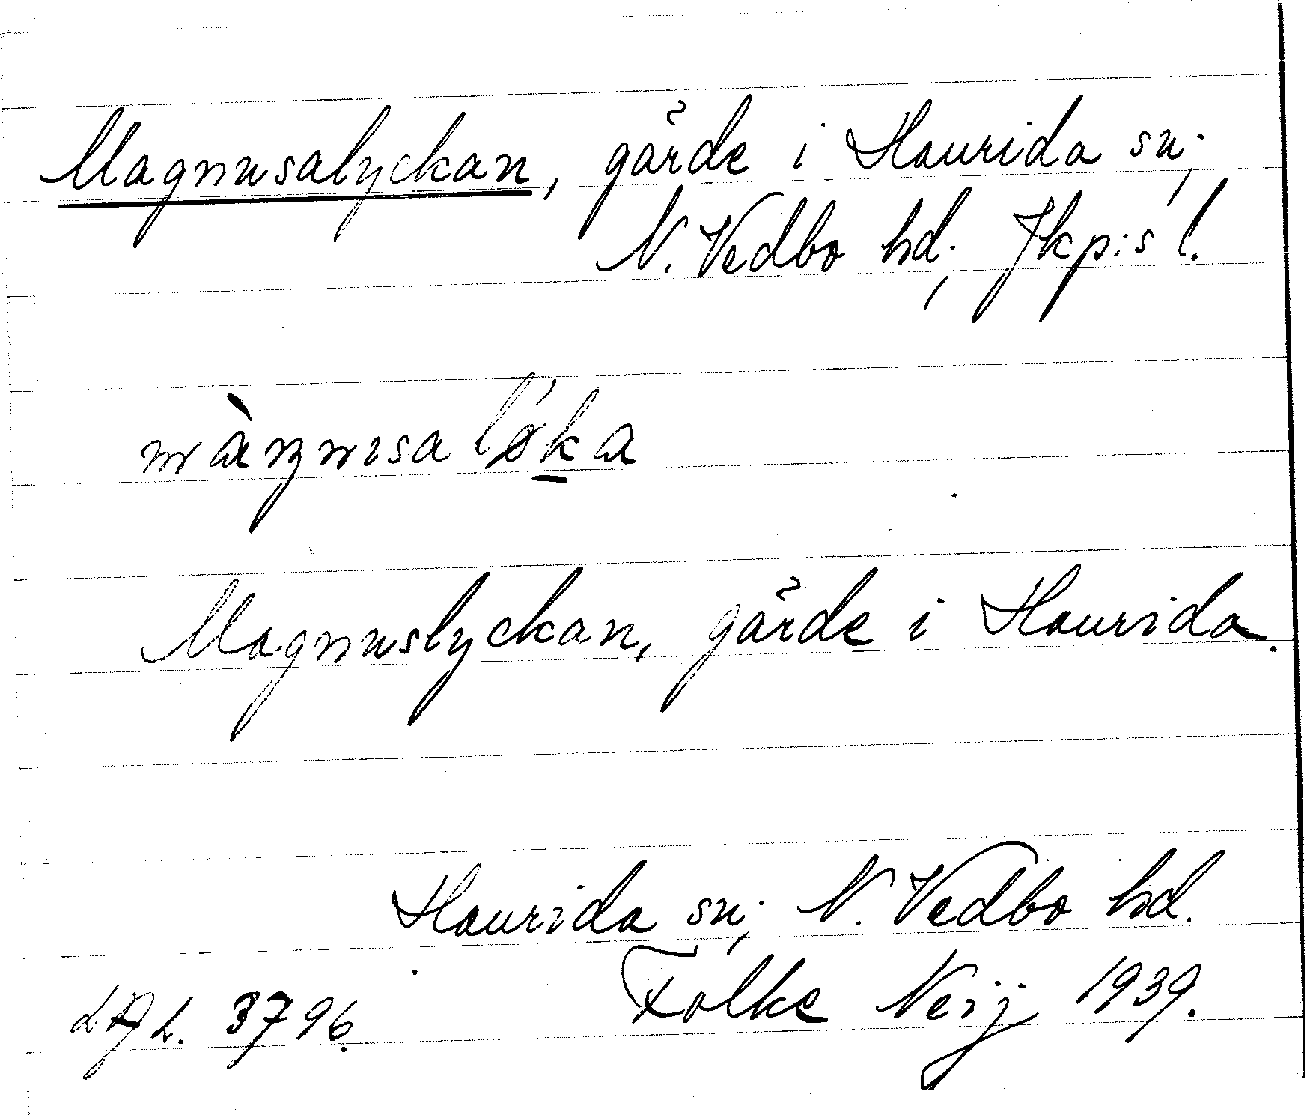 Magnusalyckan, gärde i Haurida sn;
N. Vedbo hd; Jkp:s l.
Magnuslyckan, gärde i Haurida.
Haurida sn; N. Vedbo hd.
3796. Folke Neij 1939.